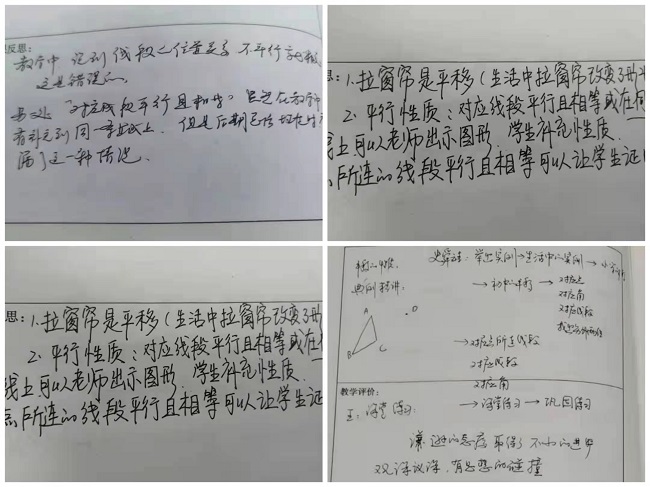 反思:
教学中 说到线段的位置关系 不平行就相交
这是错误的。
另处"对应线段平行且相等"
有补充到同一直线上. 但是后期总结
漏了这一种情况.
思: 1. 拉窗帘是平移(生活中拉窗帘改变了形
2. 平行性质: 对应线段平行且相等或在同
线上可以老师出示图形. 学生补充性质.
点所连的线段平行且相等可以让学生证
思: 1. 拉窗帘是平移(生活中拉窗帘改变了形
2. 平行性质: 对应线段平行且相等或在同
线上可以老师出示图形. 学生补充性质.
点所连的线段平行且相等可以让学生证
→生活中的实例→
典例精讲:
对应点
对应角
对应线段
A
O
B
C
→对应点所连线段
对应线段
对应角
教学评价:
→课堂练习→巩固练习
谦逊的态度 取得了不小的进步
观课议课, 有思想的碰撞